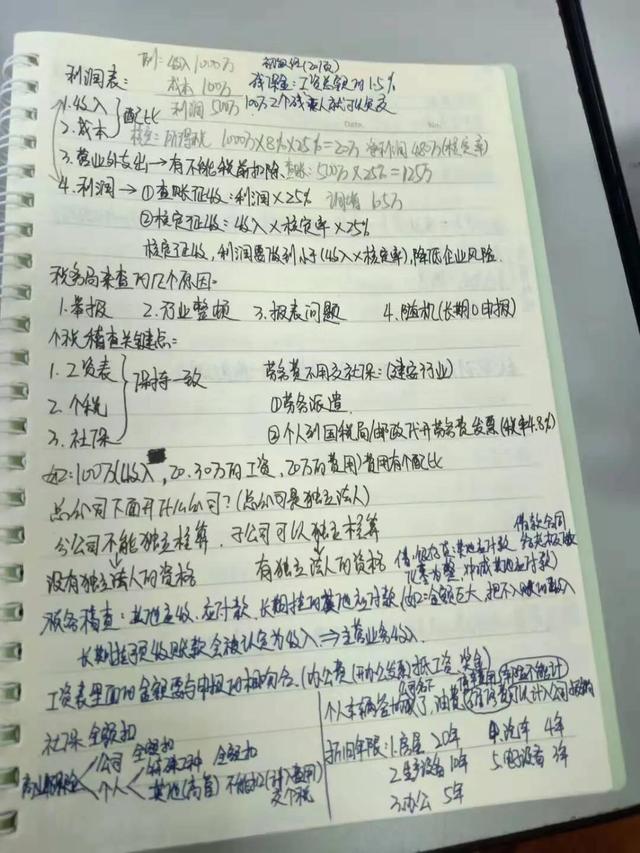 例: 收入1000万
利润表: 成本100万 残保金: 工资总额的1.5%
1.收入 利润500万 100万2个残疾人就可以免交
2.成本 配比
核定: 所得税 1000万×8%×25%=20万 净利润480万(核定率)
3.营业外支出→有不能税前扣除 查账: 500万×25%=125万
4.利润→①查账征收: 利润×25%
②核定征收: 收入×核定率×25%
核定征收, 利润要做到小于(收入×核定率), 降低企业风险.
税务局来查的几个原因:
1.举报 2.行业整顿 3.报表问题 4.随机(长期0申报)
个税稽查关键点:
1.工资表 劳务费不用交社保: (建安行业)
2.个税 保持一致 ①劳务派遣
3.社保 ②个人到国税局/邮政代开劳务费发票(税率4.8%)
如: 100万(收入, 20.30万的工资, 20万的费用)费用有个配比
总公司下面开什么公司? (总公司是独立法人)
分公司不能独立核算, 子公司可以独立核算
没有独立法人的资格 有独立法人的资格
借款合同
税务稽查: 其他应收、应付款、长期挂的其他应付款(如: 金额巨大,
长期挂预收账款会被认定为收入⇒主营业务收入
工资表里面的金额要与申报的相吻合. (办公费(开办公发票)抵工资
个车辆 油费
社保 全额扣
公司 全额扣 折旧年限: 1.房屋 20年 4.汽车 4年
商业保险 特殊工种 全额扣 2.生产设备 10年 5.电子设备 3年
个人 其他(高管) 不能扣(计入费用) 交个税
3.办公 5年